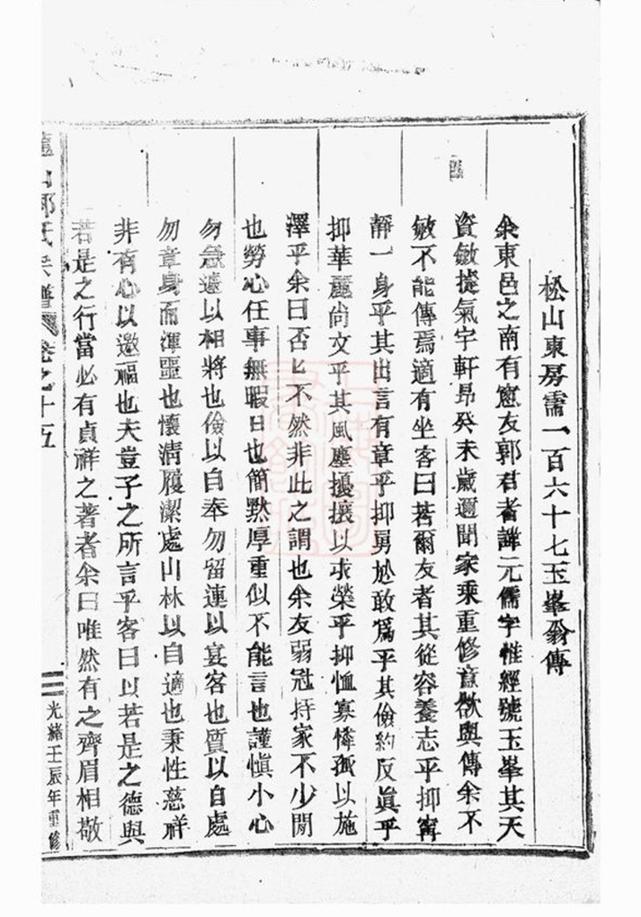 松山東房需一百六十七玉峯翁傳
余東邑之南有窓友郭君者諱元儒字惟經號玉峯其天
資敏捷氣宇軒昂癸未歲邇聞家乘重修意欲與傳余不
敏不能傳焉適有坐客曰若爾友者其從容養志乎抑寗
靜一身乎其出言有章乎抑勇於敢爲乎其儉約反眞乎
抑華麗尚文乎其風塵擾攘以求榮乎抑恤寡憐孤以施
澤乎余曰否匕不然非此之謂也余友弱冠持家不少閒
也勞心任事無暇日也簡黙厚重似不能言也謹愼小心
勿急遽以相將也儉以自奉勿留連以宴客也質以自處
勿章身而渾噩也懷清履潔處山林以自適也秉性慈祥
非有心以邀福也夫豈子之所言乎客曰以若是之德與
若是之行當必有貞祥之著者余曰唯然有之齊眉相敬
山郭氏宗譜 卷之十五
光緒壬辰年重修